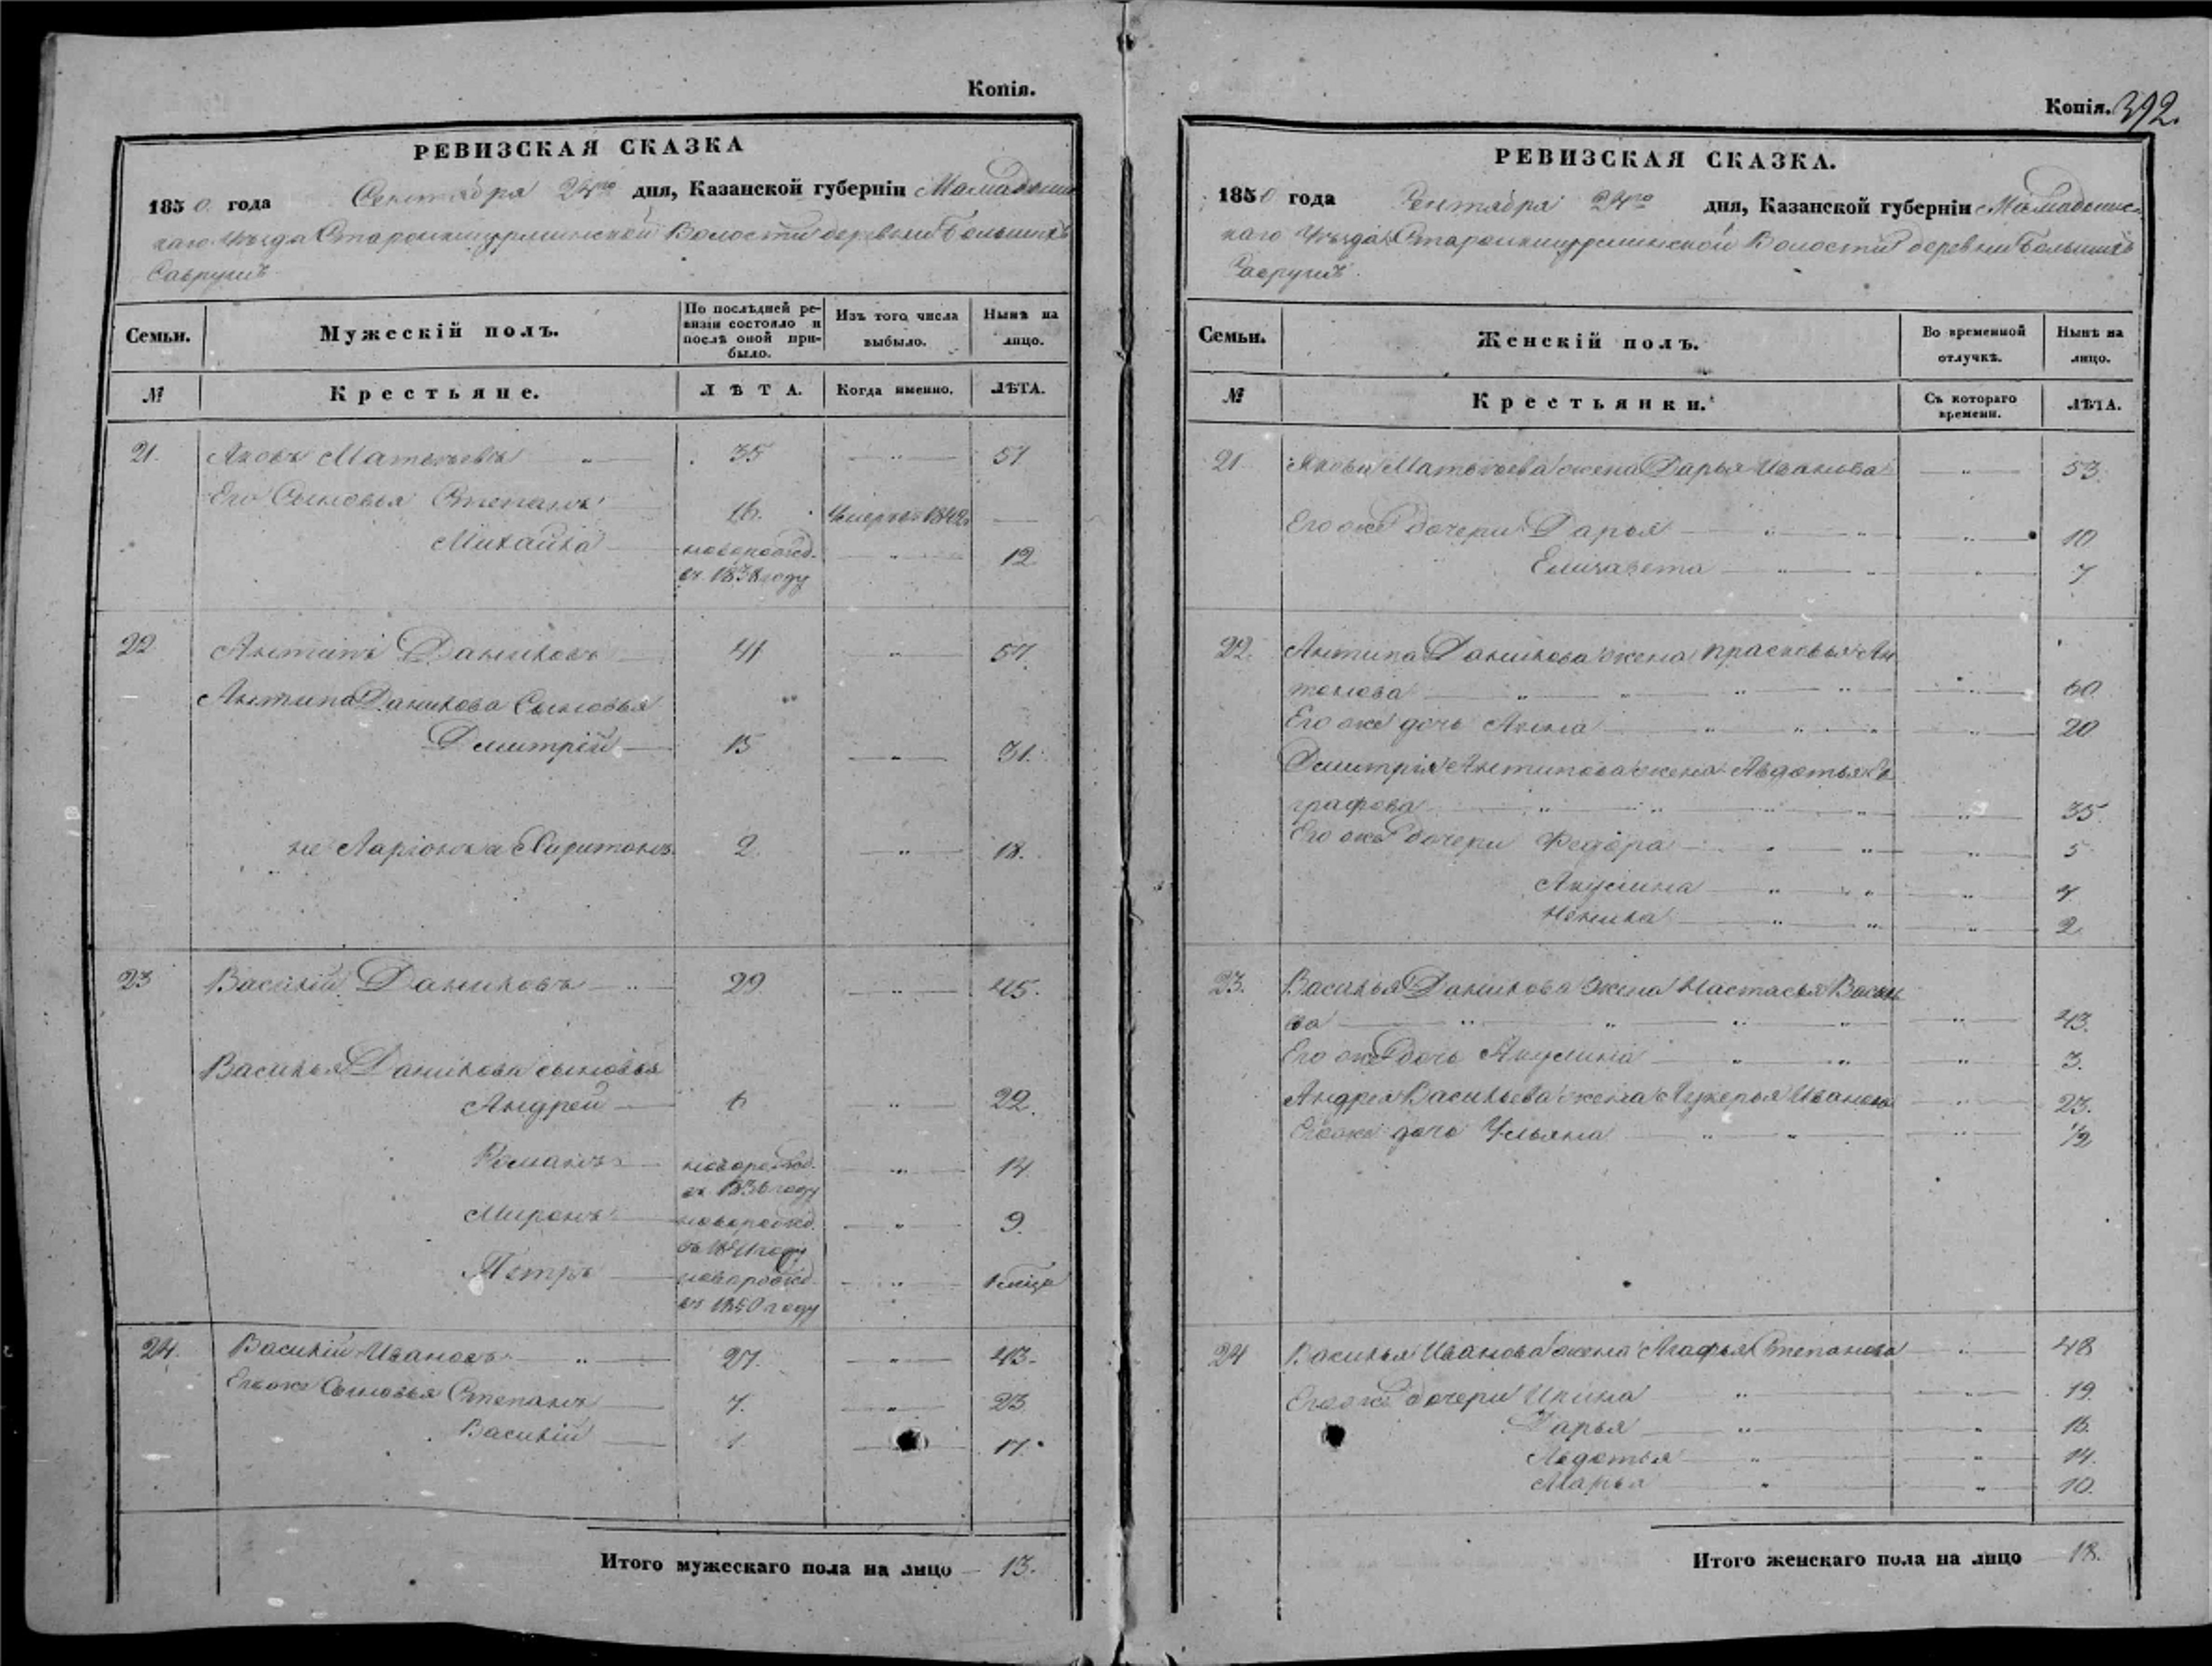 Копія.
РЕВИЗСКАЯ СКАЗКА
1850 года Сентября 24го дня, Казанской губерніи Мамадыш
каго Уѣзда Волости деревни Большихъ
Савругиъ
Семьи. Мужескій полъ. По послѣдней ревизіи состояло и послѣ оной прибыло. Изъ того числа выбыло. Нынѣ на лицо.
№ Крестьяне. ЛѢТА. Когда именно. ЛѢТА.
21. Яковъ Матвѣевъ 35 51
Его Сыновья Степанъ 16. Умеръ въ 1842
Михайла новорожд. 12
въ 1838 году
22 Антипъ Даниловъ 41 57.
Антипа Данилова Сыновья
Дмитрій 15 31.
не Ларіонъ а Харитонъ 2. 18.
23 Василій Даниловъ 29 45.
Василья Данилова сыновья
Андрей 6 22.
Романъ новорожд. 14
въ 1836 году
Миронъ новорожд. 9.
въ 1841 году
Петръ новорожд.
въ 1850 году
24. Василій Ивановъ 27. 43.
Его же Сыновья Степанъ 7. 23
Василій 1. 17.
Итого мужескаго пола на лицо 13.
Копія. 392.
РЕВИЗСКАЯ СКАЗКА.
1850 года Сентября 24го дня, Казанской губерніи Мамадышс
каго Уѣзда Волости деревни Большихъ
Савругиъ.
Семьи. Женскій полъ. Во временной отлучкѣ. Нынѣ на лицо.
№ Крестьянки. Съ котораго времени. ЛѢТА.
21 Якова Матвѣева жена Дарья Иванова 53.
Его же дочери Дарья 10
Елизавета 7
22. Антипа Данилова жена Прасковья Ан
тонова 60
Его же дочь Анна 20
Дмитрія Антипова жена Авдотья Ев
графова 35.
Его же дочери Федора 5
Акулина 4
Ненила 2
23. Василья Данилова жена Настасья Василь
ва 43.
Его же дочь Акулина 3.
Андрея Васильева жена Лукерья Иванова 23.
Его же дочь Ульяна 1/2
24 Василья Иванова жена Агафья Степанова 48
Его же дочери 19.
Дарья
Авдотья 14.
Марья 10.
Итого женскаго пола на лицо 18.